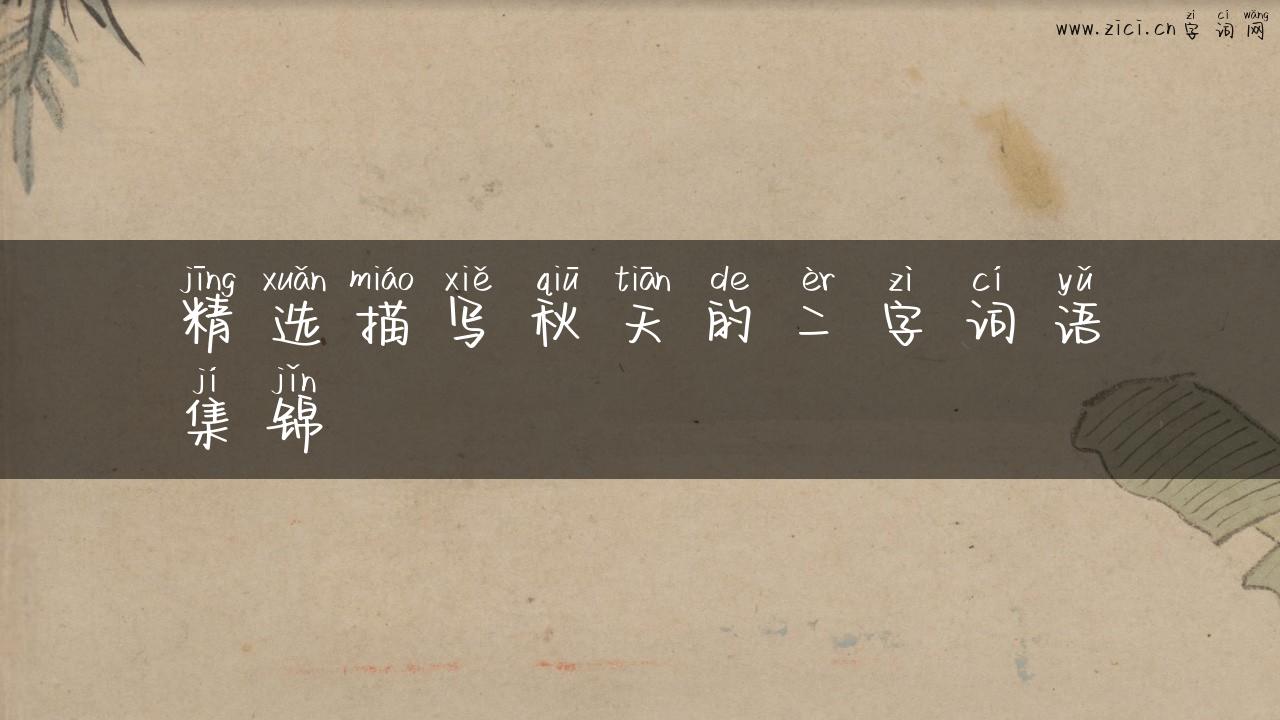 zì cí wǎng
www.zici.cn 字 词 网
jīng xuǎn miáo xiě qiū tiān de èr zì cí yǔ
精 选 描 写 秋 天 的 二 字 词 语
jí jǐn
集 锦